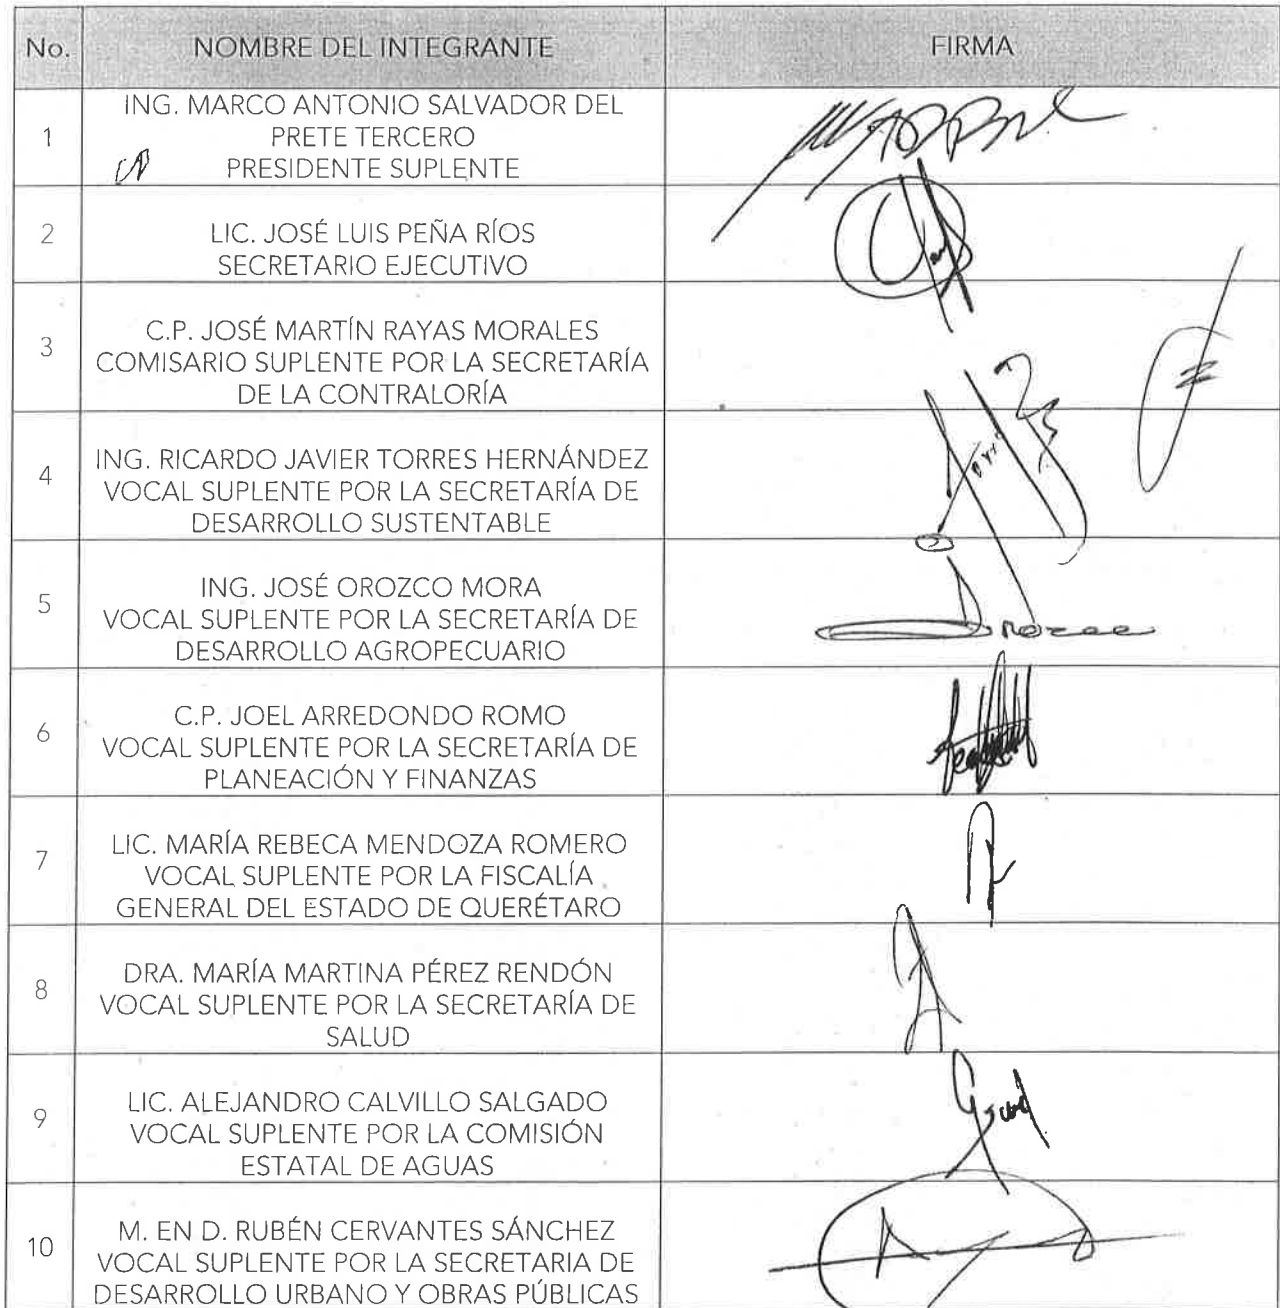 No. NOMBRE DEL INTEGRANTE FIRMA
1
ING. MARCO ANTONIO SALVADOR DEL
PRETE TERCERO
PRESIDENTE SUPLENTE
2
LIC. JOSÉ LUIS PEÑA RÍOS
SECRETARIO EJECUTIVO
3
C.P. JOSÉ MARTÍN RAYAS MORALES
COMISARIO SUPLENTE POR LA SECRETARÍA
DE LA CONTRALORÍA
4
ING. RICARDO JAVIER TORRES HERNÁNDEZ
VOCAL SUPLENTE POR LA SECRETARÍA DE
DESARROLLO SUSTENTABLE
5
ING. JOSÉ OROZCO MORA
VOCAL SUPLENTE POR LA SECRETARÍA DE
DESARROLLO AGROPECUARIO
6
C.P. JOEL ARREDONDO ROMO
VOCAL SUPLENTE POR LA SECRETARÍA DE
PLANEACIÓN Y FINANZAS
7
LIC. MARÍA REBECA MENDOZA ROMERO
VOCAL SUPLENTE POR LA FISCALÍA
GENERAL DEL ESTADO DE QUERÉTARO
8
DRA. MARÍA MARTINA PÉREZ RENDÓN
VOCAL SUPLENTE POR LA SECRETARÍA DE
SALUD
9
LIC. ALEJANDRO CALVILLO SALGADO
VOCAL SUPLENTE POR LA COMISIÓN
ESTATAL DE AGUAS
10
M. EN D. RUBÉN CERVANTES SÁNCHEZ
VOCAL SUPLENTE POR LA SECRETARIA DE
DESARROLLO URBANO Y OBRAS PÚBLICAS